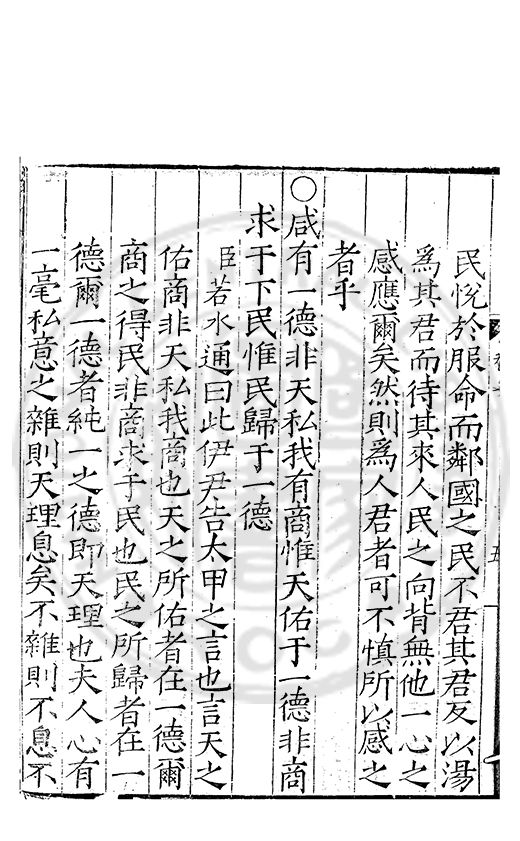 民悅於服命而鄰國之民不君其君反以湯
為其君而待其來人民之向背無他一心之
感應爾矣然則為人君者可不慎所以感之
者乎
○咸有一德非天私我有商惟天佑于一德非商
求于下民惟民歸于一德
臣若水通曰此伊尹告太甲之言也言天之
佑商非天私我商也天之所佑者在一德爾
商之得民非商求于民也民之所歸者在一
德爾一德者純一之德即天理也夫人心有
一毫私意之雜則天理息矣不雜則不息不